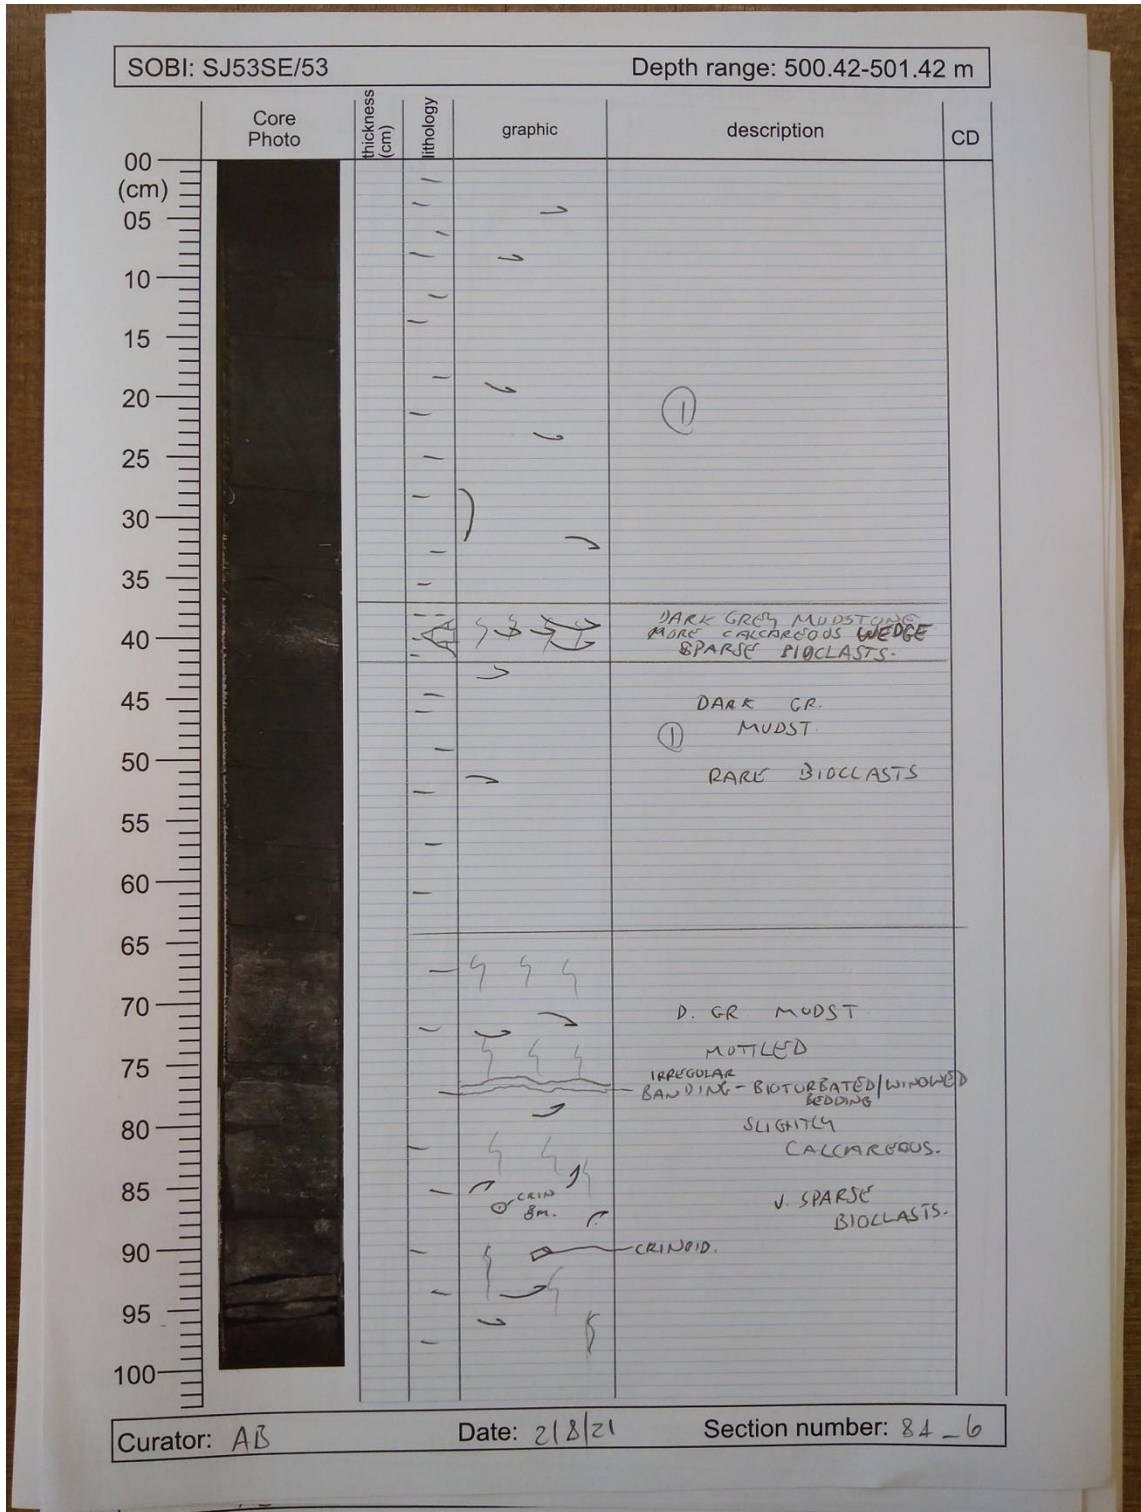 SOBI: SJ53SE/53
Depth range: 500.42-501.42 m
Core
Photo
thickness
(cm)
lithology
graphic
description
CD
00
(cm)
05
10
15
20
①
25
30
35
DARK GREY MUDSTONE
40
MORE CALCAREOUS WEDGE
SPARSE BIOCLASTS.
45
DARK GR.
① MUDST.
50
RARE BIOCLASTS
55
60
65
70
D. GR MUDST
MOTTLED
75
IRREGULAR
BANDING - BIOTURBATED/WINOWED
BEDDING
80
SLIGHTLY
CALCAREOUS.
85
CRIN
8m.
V. SPARSE
BIOCLASTS.
90
CRINOID.
95
100
Curator: AB
Date: 2/8/21
Section number: 84_6